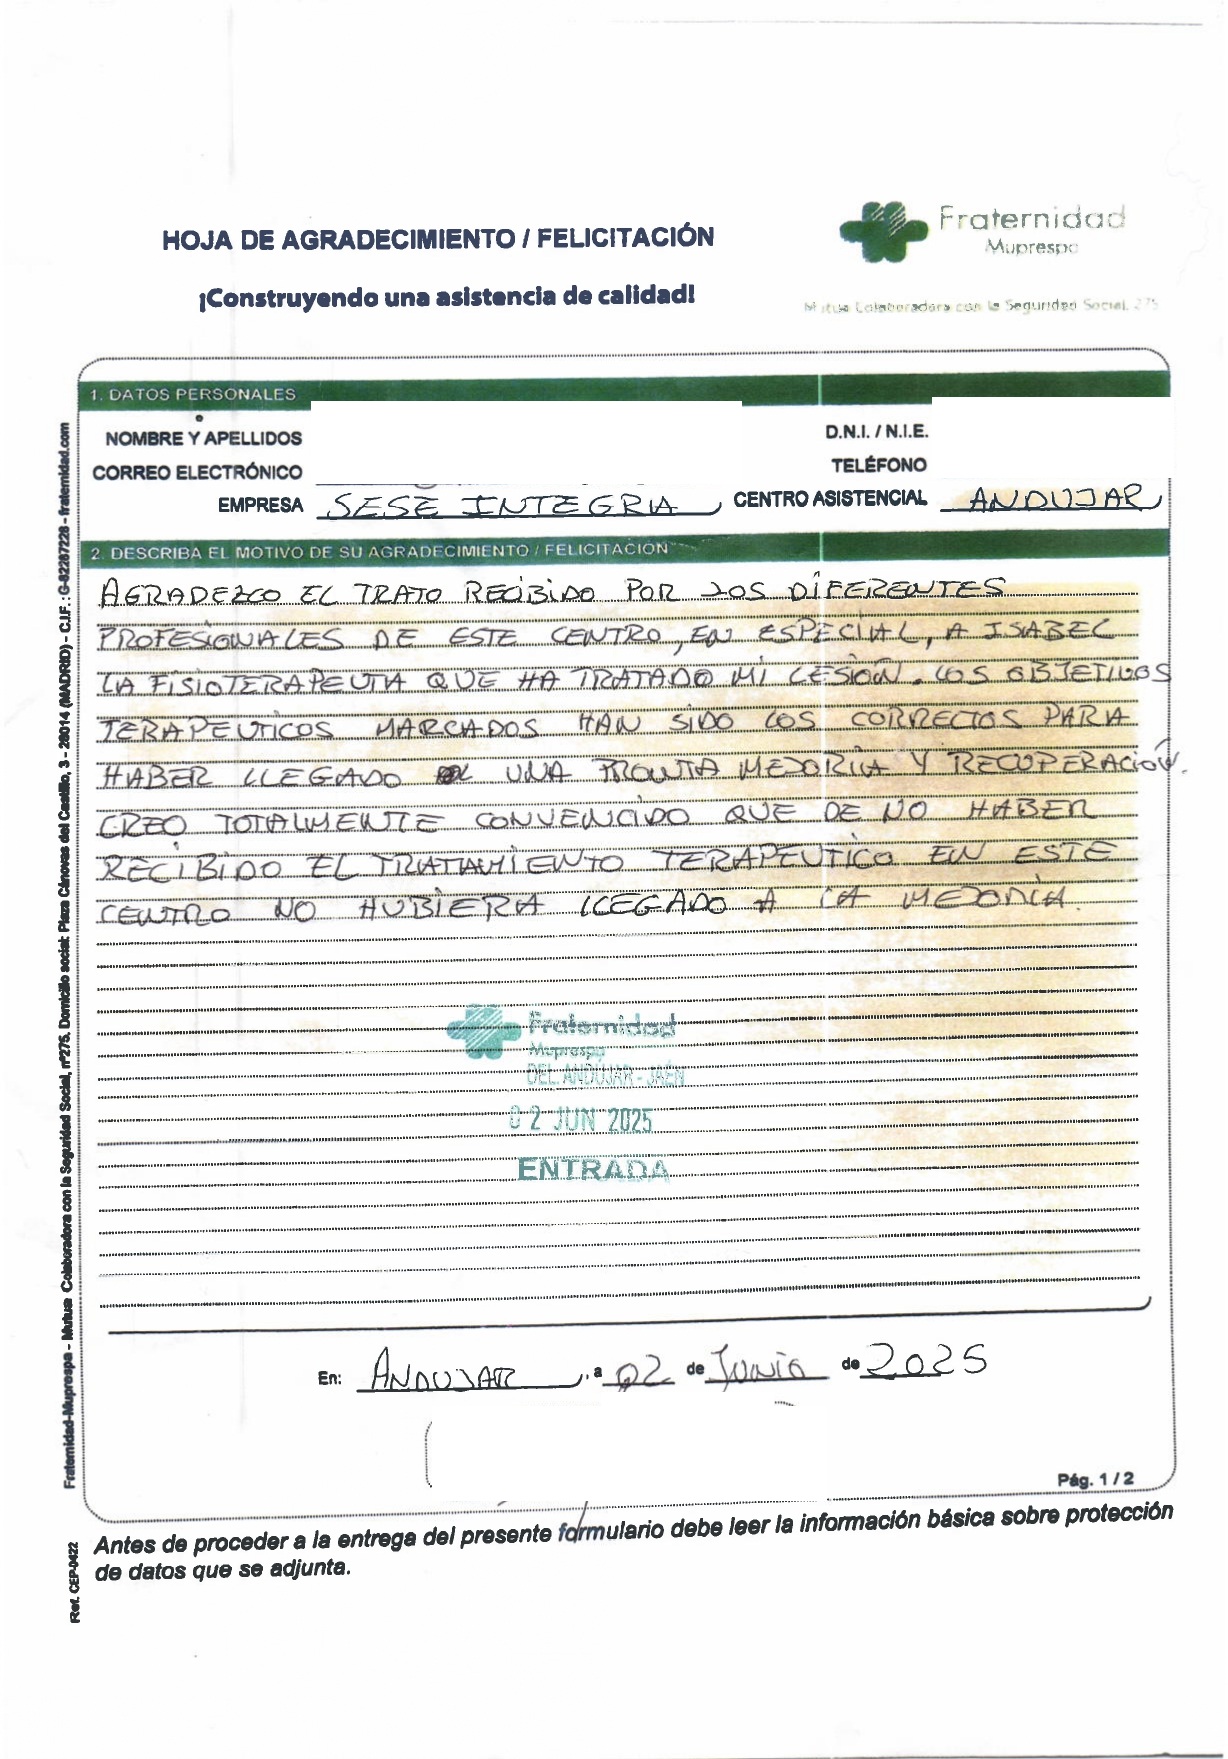 HOJA DE AGRADECIMIENTO / FELICITACIÓN
¡Construyendo una asistencia de calidad!
Fraternidad
Muprespa
Mutua Colaboradora con la Seguridad Social, 275
1. DATOS PERSONALES
NOMBRE Y APELLIDOS
D.N.I. / N.I.E.
CORREO ELECTRÓNICO
TELÉFONO
EMPRESA SESE INTEGRIA
CENTRO ASISTENCIAL ANDUJAR
2. DESCRIBA EL MOTIVO DE SU AGRADECIMIENTO / FELICITACIÓN
AGRADEZCO EL TRATO RECIBIDO POR LOS DIFERENTES
PROFESIONALES DE ESTE CENTRO, EN ESPECIAL, A ISABEL
LA FISIOTERAPEUTA QUE HA TRATADO MI LESIÓN. LOS OBJETIVOS
TERAPEUTICOS MARCADOS HAN SIDO LOS CORRECTOS PARA
HABER LLEGADO UNA PRONTA MEJORIA Y RECUPERACIÓN.
CREO TOTALMENTE CONVENCIDO QUE DE NO HABER
RECIBIDO EL TRATAMIENTO TERAPEUTICO EN ESTE
CENTRO NO HUBIERA LLEGADO A LA MEJORÍA.
Fraternidad
Muprespa
DEL. ANDÚJAR - JAÉN
02 JUN 2025
ENTRADA
En: ANDUJAR, a 02 de JUNIO de 2025
Pág. 1 / 2
Antes de proceder a la entrega del presente formulario debe leer la información básica sobre protección
de datos que se adjunta.
Fraternidad-Muprespa - Mutua Colaboradora con la Seguridad Social, nº275. Domicilio social: Plaza Cánovas del Castillo, 3 - 28014 (MADRID) - C.I.F.: G-82287228 - fraternidad.com
Ref. CEP-0422